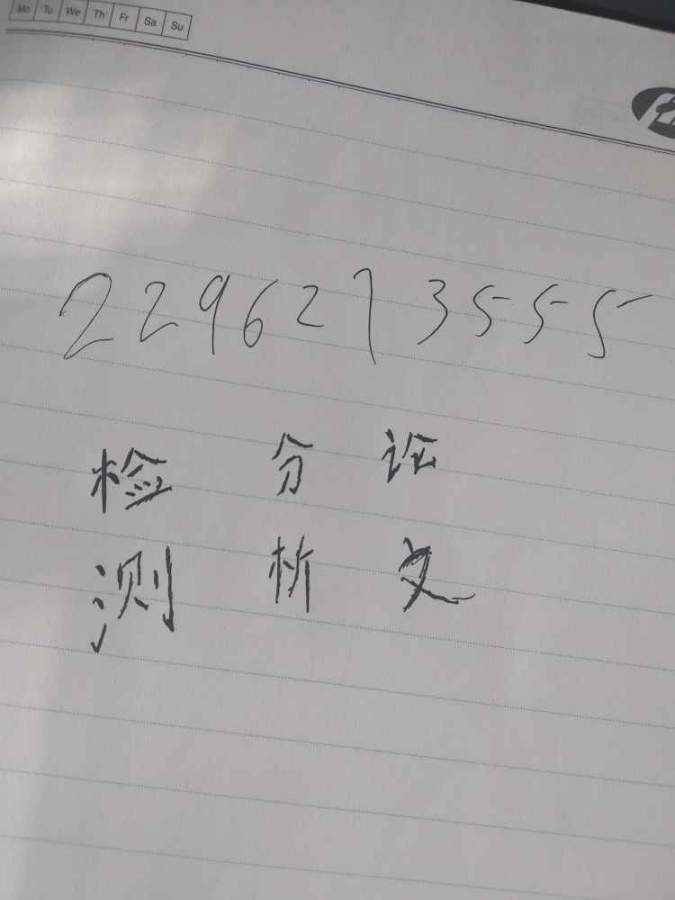 Mo Tu We Th Fr Sa Su
2296273555
检 分 证
测 析 文